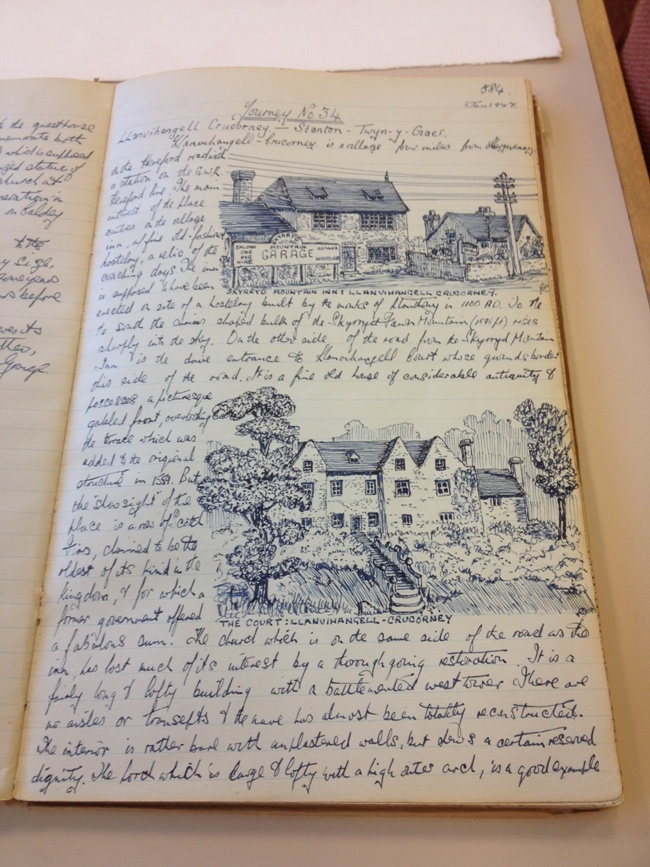 to the guesthouse
both
which suffered
statue of
church at
in
on Caldey
to the
before
was its
Grange
884.
Jan 1947.
Journey No 34
Llanvihangell Crucorney — Stanton - Twyn-y-Gaer.
Llanvihangell-Crucorney is a village few miles from Abergavenny
on the Hereford road with
a station on the G.W.R.
Hereford line. The main
interest of the place
centres on the village
inn, a fine old-fashioned
hostelry, a relic of the
coaching days. The inn
is supposed to have been
MOUNTAIN
GARAGE
CAR
FOR
HIRE
SKYRRYD MOUNTAIN INN: LLANVIHANGELL CRUCORNEY.
erected on site of a hostelry built by the monks of Llanthony in 1100 A.D. To the
to south the curious shaped bulk of the Skyrryd Fawr Mountain (1596 ft) rises
sharply into the sky. On the other side of the road from the Skyrryd Mountain
Inn is the drive entrance to Llanvihangell Court whose grounds border
this side of the road. It is a fine old house of considerable antiquity &
possesses a picturesque
gabled front, overlooking
the terrace which was
added to the original
structure in 1559. But
the "show sight" of the
place is a row of
firs, claimed to be the
oldest of its kind in the
kingdom, & for which a
former government offered
THE COURT: LLANVIHANGELL-CRUCORNEY
a fabulous sum. The church which is on the same side of the road as the
inn, has lost much of its interest by a thoroughgoing restoration. It is a
fairly long & lofty building with a battlemented west tower. There are
no aisles or transepts & the nave has almost been totally reconstructed.
The interior is rather bare with unplastered walls, but has a certain reserved
dignity. The porch which is large & lofty with a high outer arch, is a good example